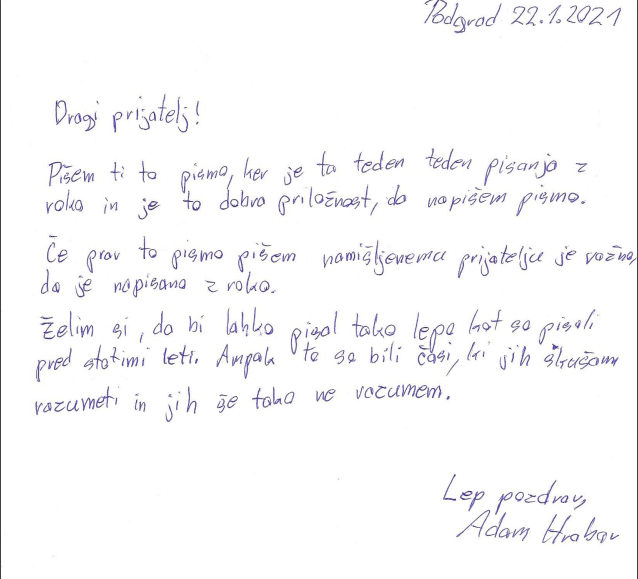 Podgrad 22.1.2021
Dragi prijatelj!
Pišem ti to pismo, ker je ta teden teden pisanja z
roko in je to dobra priložnost, da napišem pismo.
Če prav to pismo pišem namišljenemu prijatelju je važno,
da je napisano z roko.
Želim si, da bi lahko pisal tako lepo kot so pisali
pred stotimi leti. Ampak to so bili časi, ki jih skušam
razumeti in jih še tako ne razumem.
Lep pozdrav,
Adam Hrabar